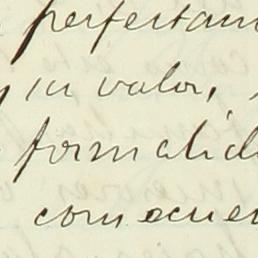 perfectam
y su valor,
formalid
consecuen